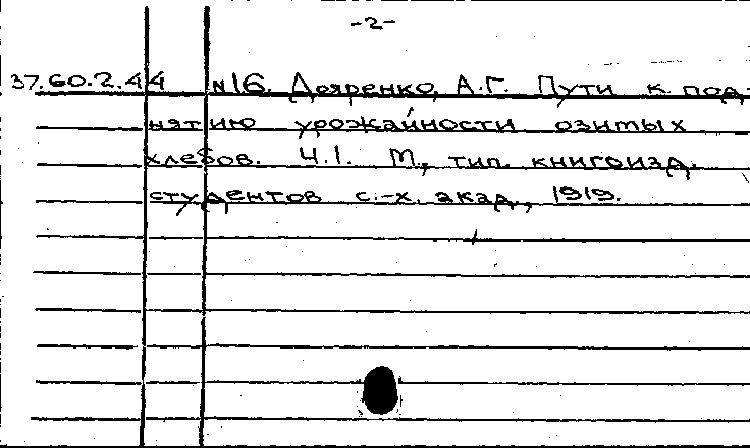 -2-
37.60.2.44 №16. Дояренко, А.Г. Пути к под-
нятию урожайности озимых
хлебов. Ч.1. М., тип. книгоизд.
студентов с.-х. акад., 1919.